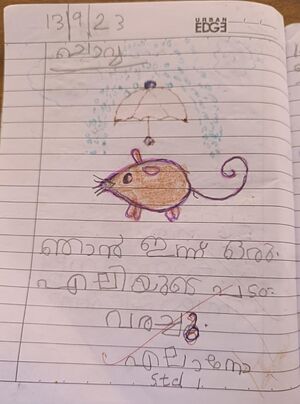 13/9/23
URBAN
EDGE
ഞാൻ ഇന്ന് ഒരു
എലിയുടെ പടം
വരച്ചു.
std 1